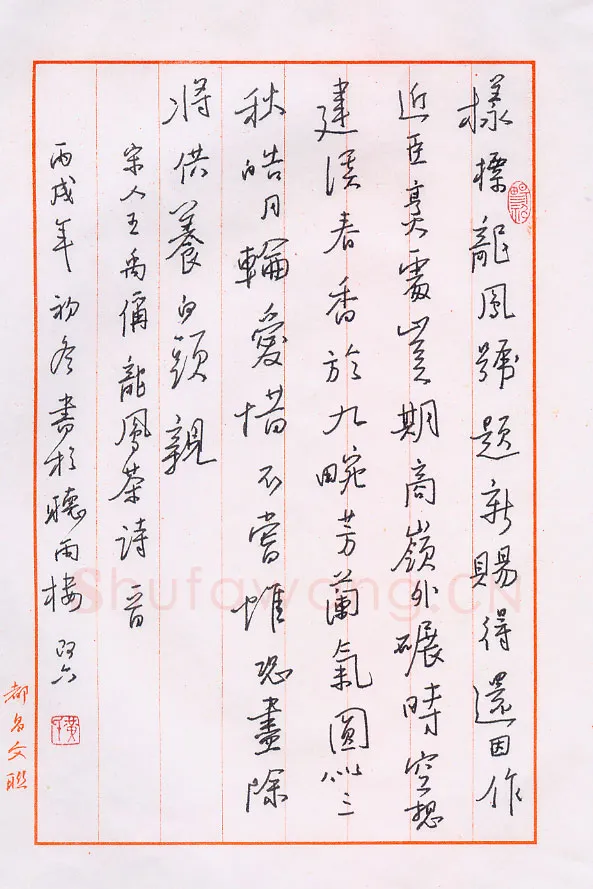 樣標龍鳳號題新賜得還因作
近臣烹處豈期商嶺外碾時空想
建溪春香於九畹芳蘭氣圓似三
秋皓月輪愛惜不嘗惟恐盡除
將供養白頭親
宋人王禹偁龍鳳茶詩首
丙戌年初冬書於聽雨樓
都昌文聯
Shufawang.CN